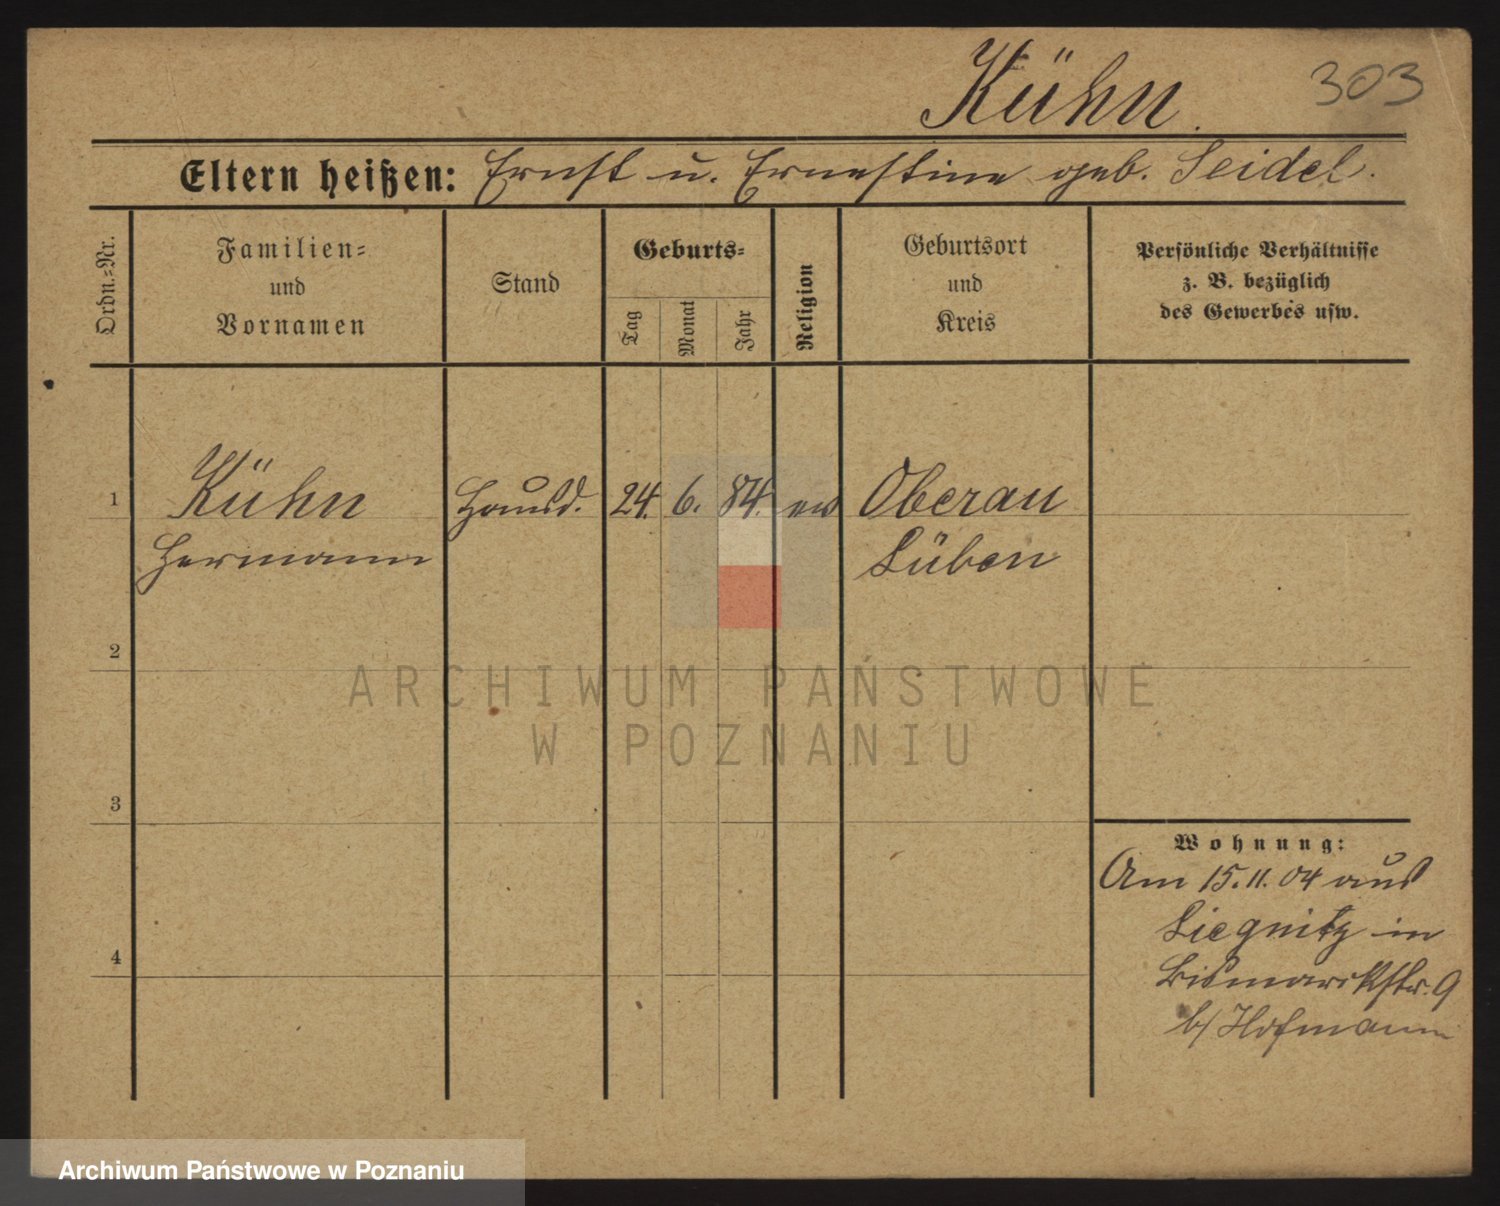 Kühn.
303
Eltern heißen: Ernst u. Ernestine geb. Seidel.
Ordn.=Nr.
Familien=
und
Vornamen
Stand
Geburts=
Tag
Monat
Jahr
Religion
Geburtsort
und
Kreis
Persönliche Verhältnisse
z. B. bezüglich
des Gewerbes usw.
1 Kühn Hausd. 24. 6. 84. ev Oberau
Hermann Lüben
2
3
4
Wohnung:
Am 15.11.04 aus
Liegnitz in
Bismarckstr. 9
b/ Hofmann
ARCHIWUM PAŃSTWOWE
W POZNANIU
Archiwum Państwowe w Poznaniu